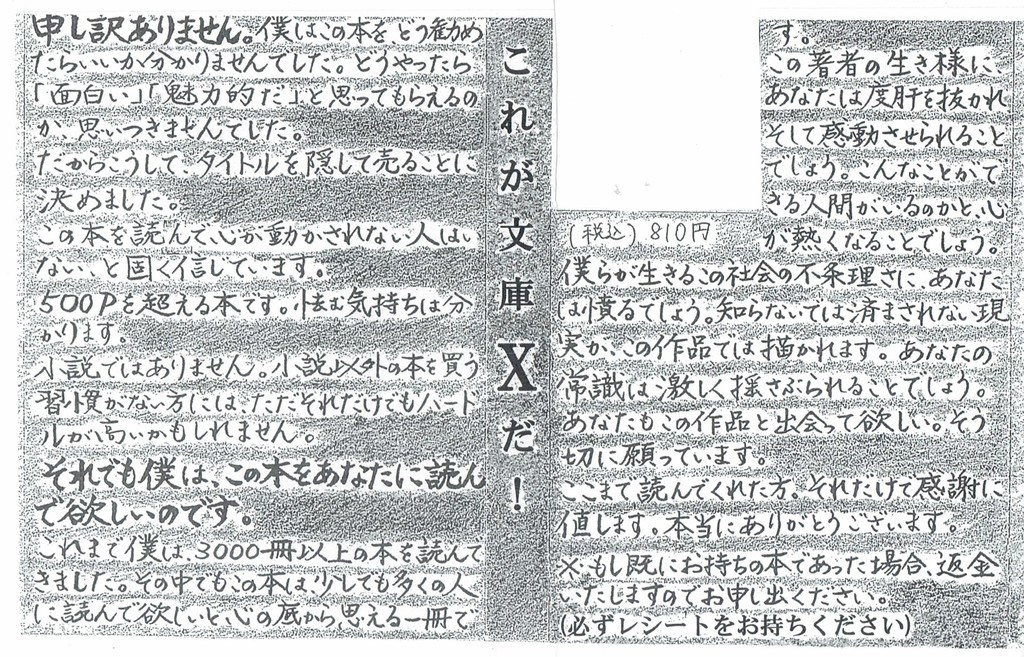 申し訳ありません。僕はこの本をどう勧め
たらいいか分かりませんでした。どうやったら
「面白い」「魅力的だ」と思ってもらえるの
か思いつきませんでした。
だからこうして、タイトルを隠して売ることに
決めました。
この本を読んで、心が動かされない人はい
ない、と固く信じています。
500Pを超える本です。怯む気持ちは分
かります。
小説ではありません。小説以外の本を買う
習慣がない方には、ただそれだけでもハード
ルが高いかもしれません。
それでも僕は、この本をあなたに読ん
で欲しいのです。
これまで僕は、3000冊以上の本を読んで
きました。その中でもこの本は、少しでも多くの人
に読んで欲しいと、心の底から思える一冊で
これが文庫Xだ!
す。
この著者の生き様に、
あなたは度肝を抜かれ
そして感動させられること
でしょう。こんなことがで
きる人間がいるのかと、心
が熱くなることでしょう。
(税込) 810円
僕らが生きるこの社会の不条理さに、あなた
は憤るでしょう。知らないでは済まされない現
実が、この作品では描かれます。あなたの
常識は激しく揺さぶられることでしょう。
あなたもこの作品と出会って欲しい。そう
切に願っています。
ここまで読んでくれた方。それだけで感謝に
値します。本当にありがとうございます。
※もし既にお持ちの本であった場合、返金
いたしますのでお申し出ください。
(必ずレシートをお持ちください)